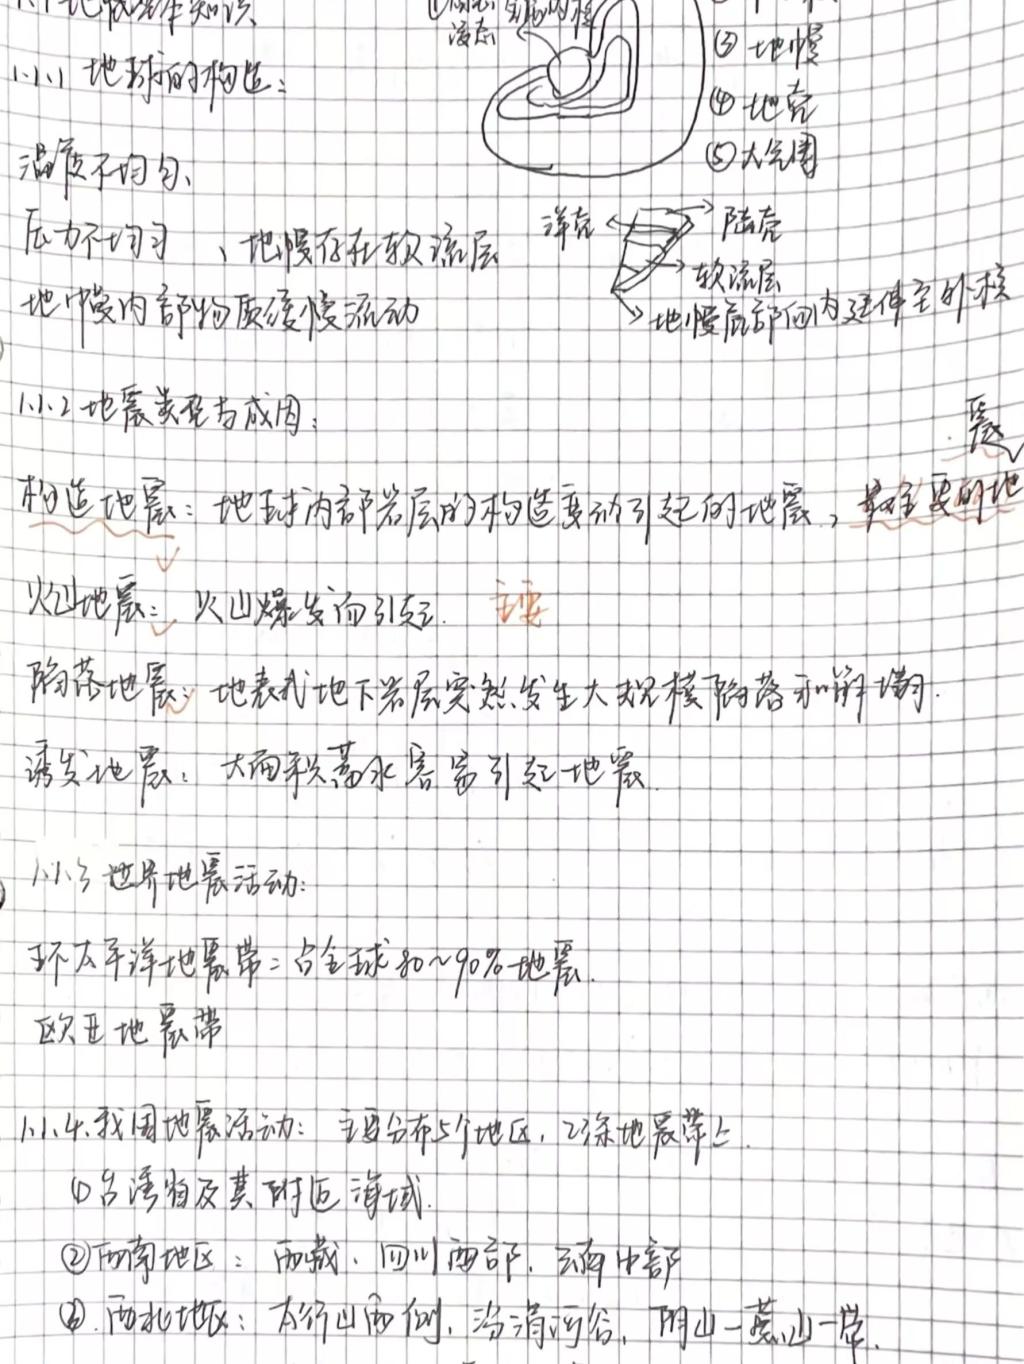 1.1 地震基本知识
液态
1.1.1 地球的构造：
③ 地慢
④ 地壳
⑤ 大气圈
温度不均匀、
压力不均匀 、地慢存在软流层
地慢内部物质缓慢流动
洋壳
陆壳
软流层
地慢底部向内延伸至外核
1.1.2 地震类型与成因：
构造地震：地球内部岩层的构造变动引起的地震，最主要的地
震
火山地震：火山爆发而引起. 主要
陷落地震：地表或地下岩层突然发生大规模陷落和崩塌.
诱发地震：大面积蓄水 引起地震.
1.1.3 世界地震活动：
环太平洋地震带：占全球80～90%地震.
欧亚地震带
1.1.4.我国地震活动：主要分布5个地区，23条地震带上.
①台湾省及其附近海域.
②西南地区：西藏、四川西部、云南中部
③.西北地区：太行山两侧、汾渭河谷，阴山—燕山一带.